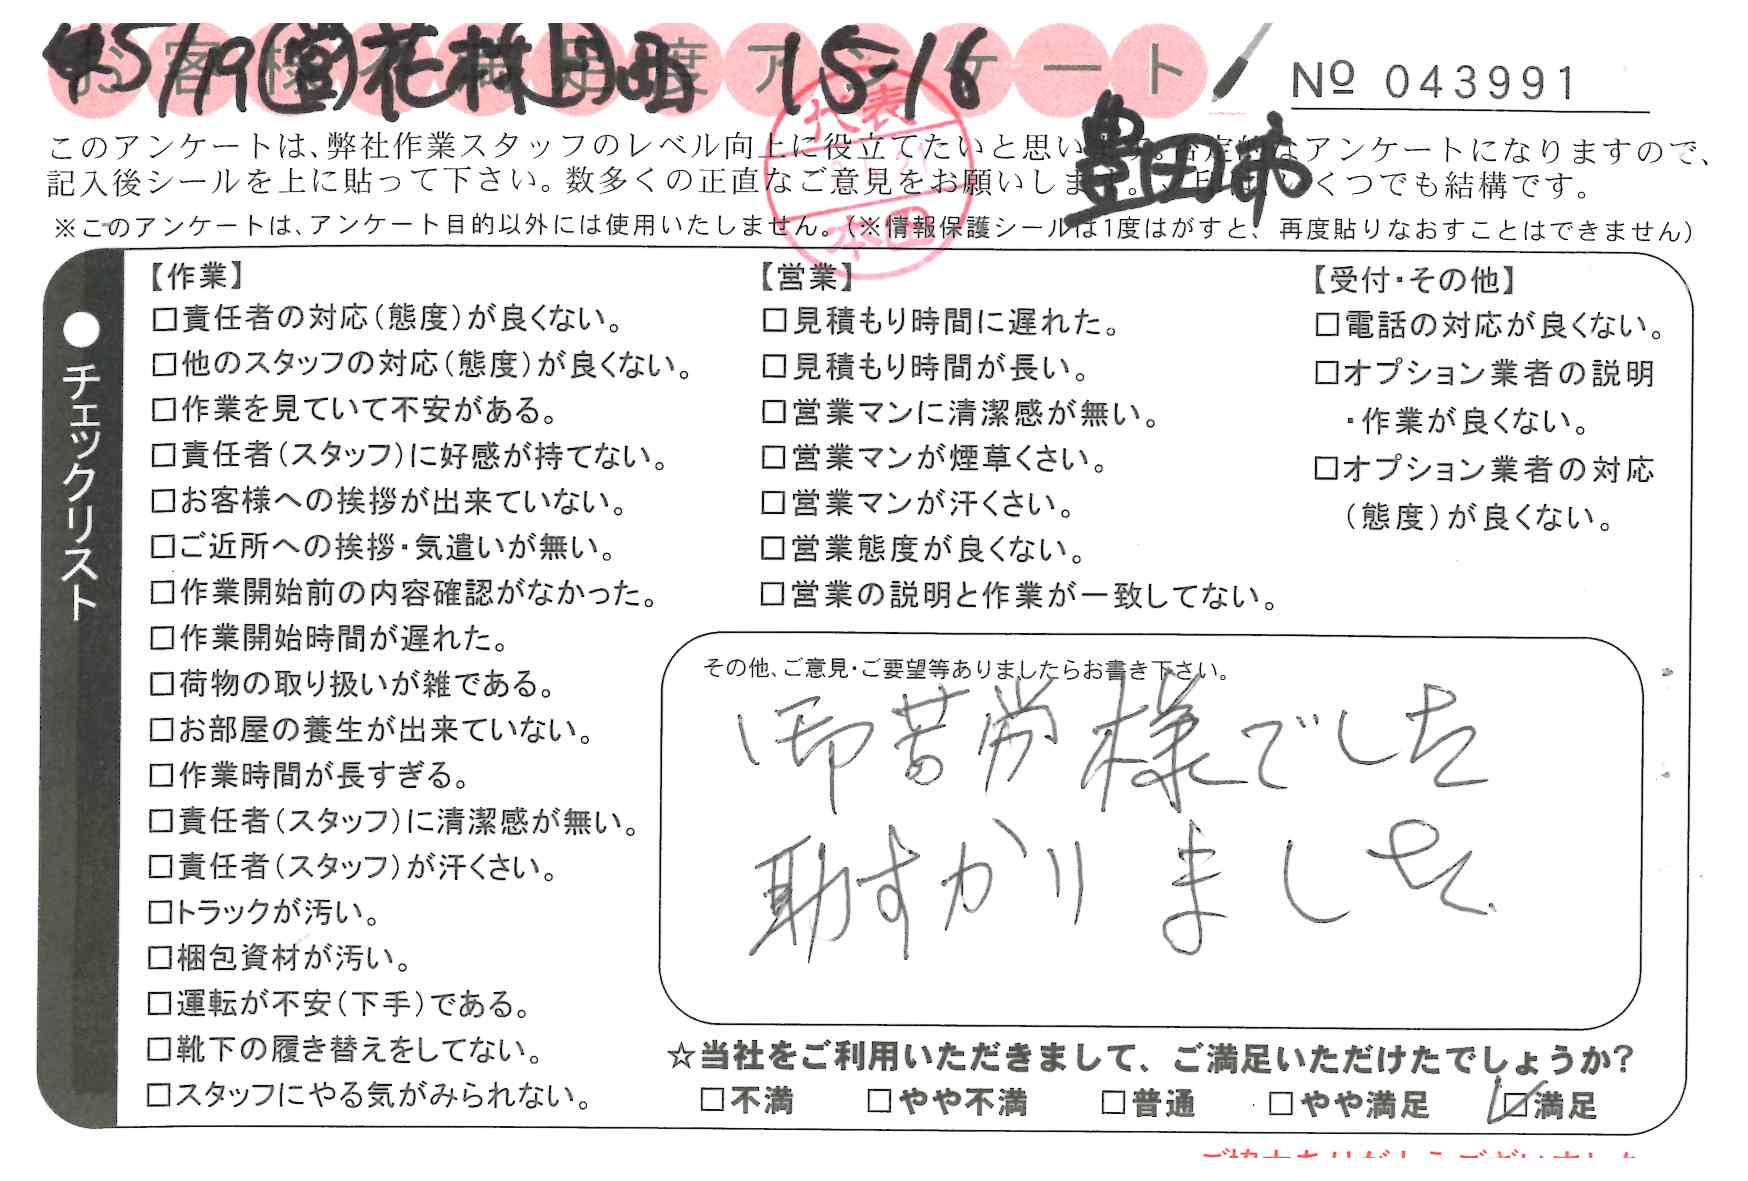 お客様満足度アンケート
5/19
15-16
豊田市
№ 043991
代表
本田
このアンケートは、弊社作業スタッフのレベル向上に役立てたいと思います。否定的なアンケートになりますので、
記入後シールを上に貼って下さい。数多くの正直なご意見をお願いします。 いくつでも結構です。
※このアンケートは、アンケート目的以外には使用いたしません。(※情報保護シールは1度はがすと、再度貼りなおすことはできません)
●チェックリスト
【作業】
□責任者の対応(態度)が良くない。
□他のスタッフの対応(態度)が良くない。
□作業を見ていて不安がある。
□責任者(スタッフ)に好感が持てない。
□お客様への挨拶が出来ていない。
□ご近所への挨拶・気遣いが無い。
□作業開始前の内容確認がなかった。
□作業開始時間が遅れた。
□荷物の取り扱いが雑である。
□お部屋の養生が出来ていない。
□作業時間が長すぎる。
□責任者(スタッフ)に清潔感が無い。
□責任者(スタッフ)が汗くさい。
□トラックが汚い。
□梱包資材が汚い。
□運転が不安(下手)である。
□靴下の履き替えをしてない。
□スタッフにやる気がみられない。
【営業】
□見積もり時間に遅れた。
□見積もり時間が長い。
□営業マンに清潔感が無い。
□営業マンが煙草くさい。
□営業マンが汗くさい。
□営業態度が良くない。
□営業の説明と作業が一致してない。
【受付・その他】
□電話の対応が良くない。
□オプション業者の説明
・作業が良くない。
□オプション業者の対応
(態度)が良くない。
その他、ご意見・ご要望等ありましたらお書き下さい。
御苦労様でした
助すかりました
☆当社をご利用いただきまして、ご満足いただけたでしょうか?
□不満 □やや不満 □普通 □やや満足 ☑満足
ご協力ありがとうございました